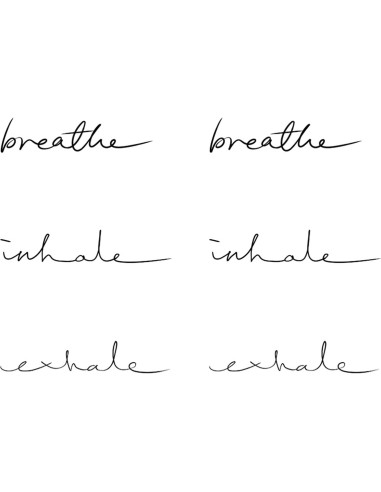 breathe breathe
inhale inhale
exhale exhale